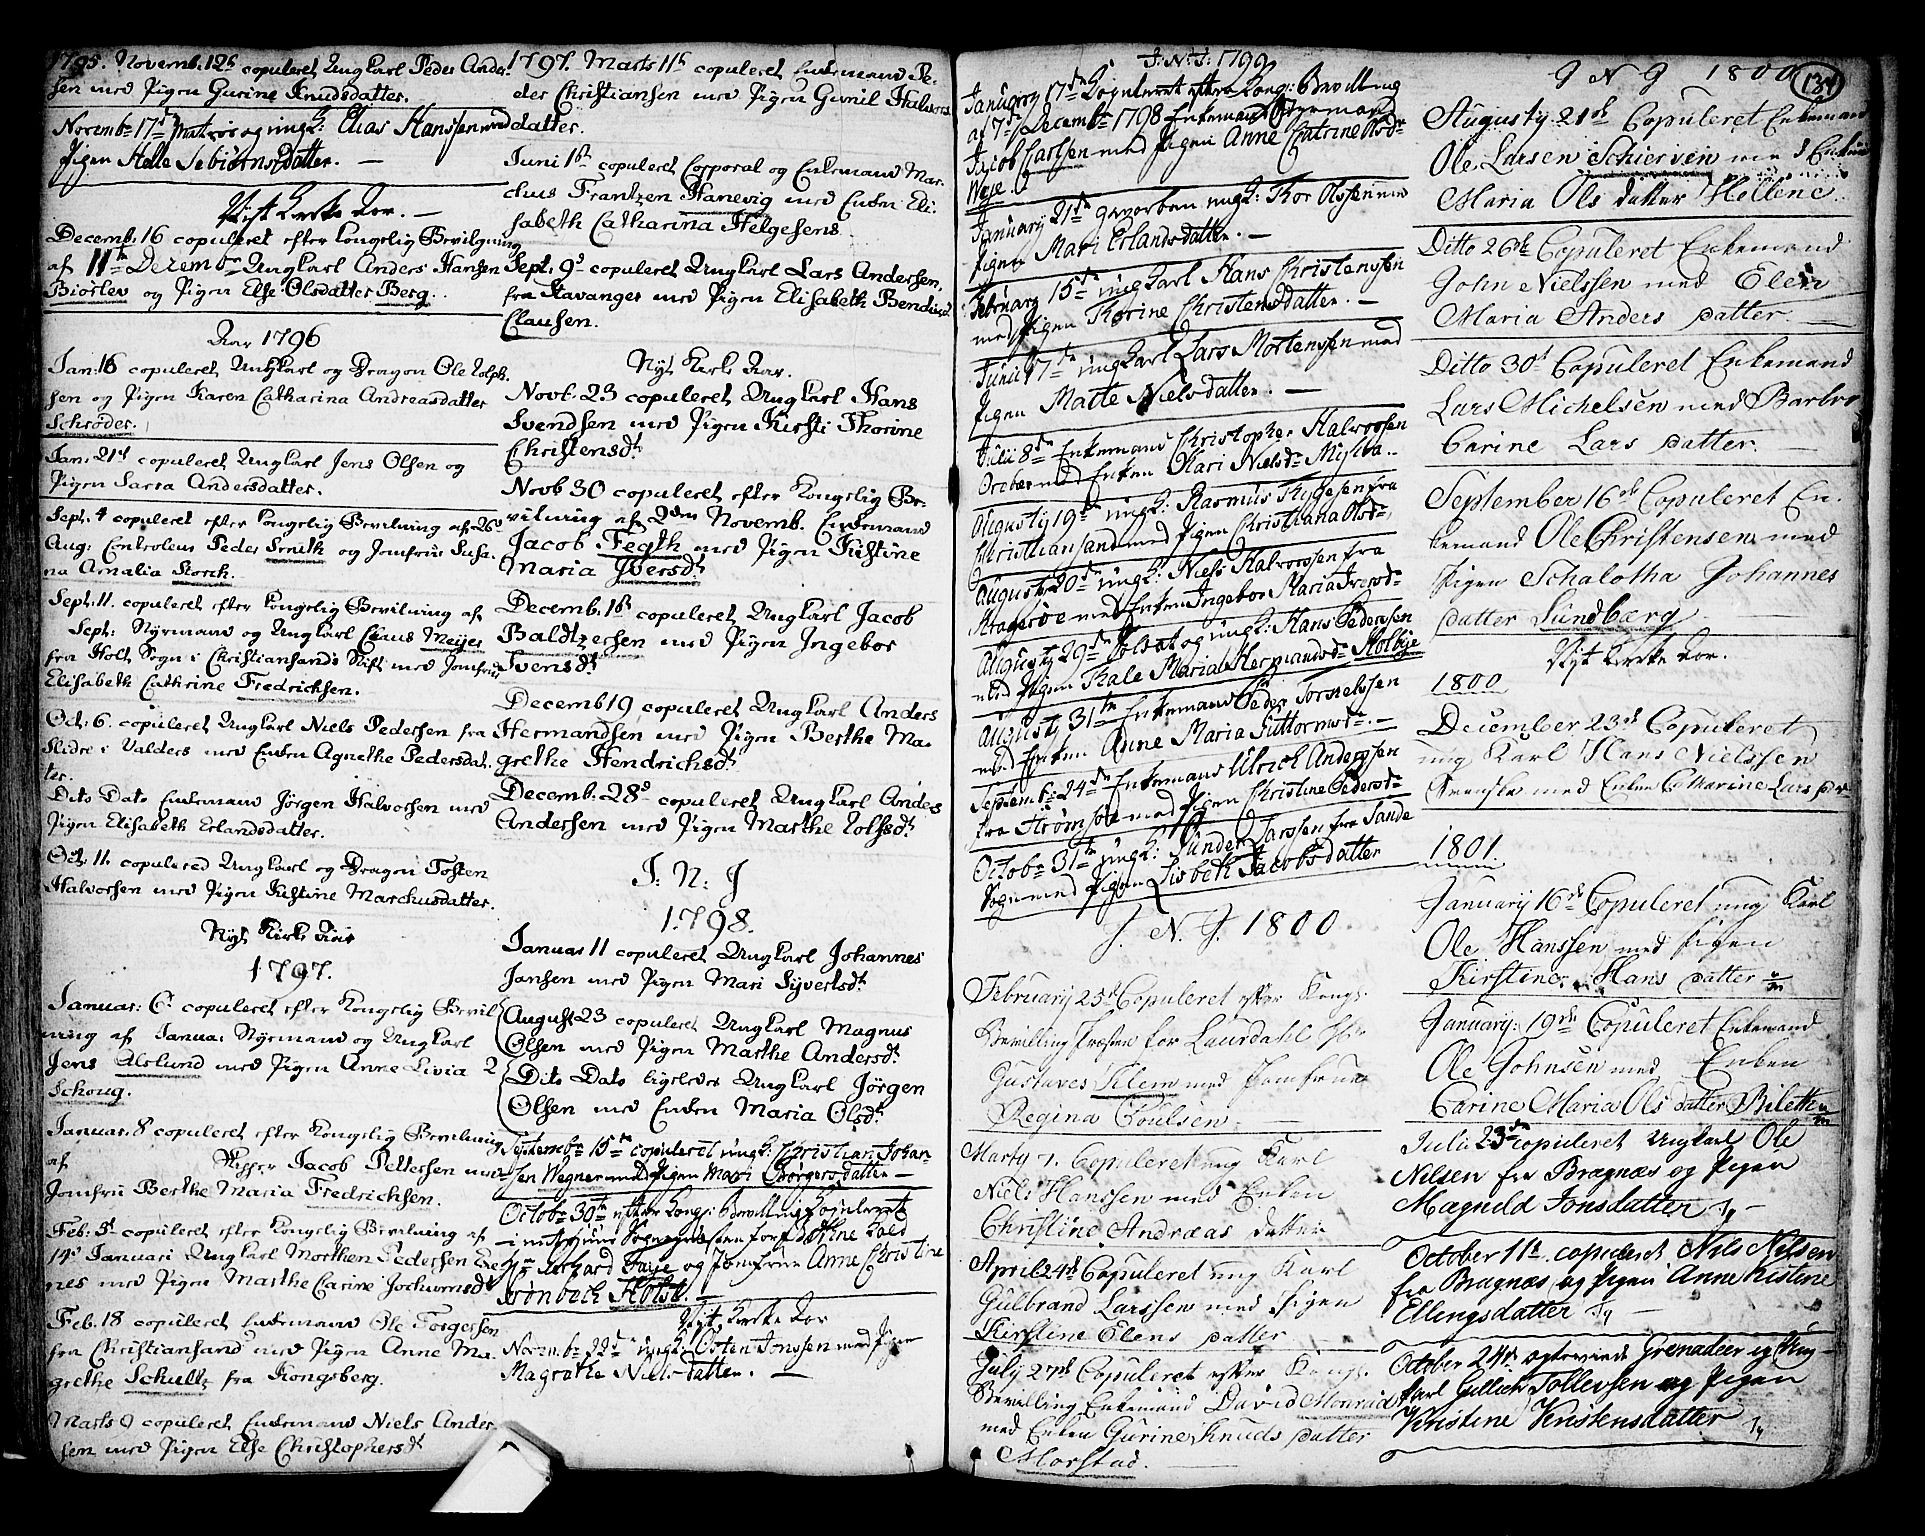 1795. Novemb. 12t copuleret Ungkarl Peder Ander-
sen med Pigen Gurine Knudsdatter.
Novemb. 17d Matros og ungk: Elias Hanssen med
Pigen Helle Sebiörnsdatter. —
Nÿt Kirke Aar. —
Decemb. 16 copuleret efter Kongelig Bevilgning
af 11te Decembr Ungkarl Anders Hansen
Biörlev og Pigen Else Olsdatter Berg.
Aar 1796
Jan: 16 copuleret Ungkarl og Dragon Ole Rolph-
sen og Pigen Karen Catharina Andreasdatter
Schrøder.
Jan: 21d copuleret Ungkarl Jens Olsen og
Pigen Sarra Andersdatter.
Sept. 4 copuleret efter Kongelig Bevilning af 26d
Aug: Controleur Peder Smith og Jomfrue Susa-
na Amalia Storch.
Sept. 11. copuleret efter Kongelig Bevilning af
Sept: Styrmand og Ungkarl Claus Meijer
fra Holt Sogn i Christiansands Stift med Jomfrue
Elisabeth Cathrine Fredrichsen.
Oct: 6. copuleret Ungkarl Niels Pedersen fra
Slidre i Valders med Enken Agnethe Pedersdat-
ter.
Dito Dato Enkemand Jörgen Halvorsen med
Pigen Elisabeth Erlandsdatter.
Oct. 11. copulered Ungkarl og Dragon Tosten
Halvorsen med Pigen Kistine Marchusdatter.
Nyt Kirke Aar
1797.
Januar: 6. copuleret efter Kongelig Bevil-
ning af Janua: Styrmand og Ungkarl
Jens Aslund med Pigen Anne Livia
Schoug.
Januar. 8 copuleret efter Kongelig Bevilning
af Skipper Jacob Pettersen med
Jomfru Berthe Maria Fredrichsen.
Feb: 5t copuleret efter Kongelig Bevilning af
14d Januari Ungkarl Morthen Pedersen
nes med Pigen Marthe Carine Jochumsdt
Feb. 18 copuleret Enkemand Ole Torgersen
fra Christiansand med Pigen Anne Ma-
grethe Schultz fra Kongsberg.
Marts 9 copuleret Enkemand Niels Ander-
sen med Pigen Else Christophersdt
1797. Marts 11t copuleret Enkemand Pe-
der Christiansen med Pigen Gunil Halvors-
datter.
Juni 1st copuleret Corporal og Enkemand Mar-
chus Frantzen Hanevig med Enken Eli-
sabeth Catharina Helgesens.
Sept. 9d copuleret Ungkarl Lars Andersen
fra Stavanger med Pigen Elisabeth Bendixd
Clausen.
Nyt Kirke Aar.
Novb. 23 copuleret Ungkarl Hans
Svendsen med Pigen Kirsti Thorine
Christensdt
Novb 30 copuleret efter Kongelig Be-
vilning af 2den Novemb. Enkemand
Jacob Fegth med Pigen Kistine
Maria Iversdt
Decemb. 1st copuleret Ungkarl Jacob
Baldtzersen med Pigen Ingebor
Svensdt
Decemb 19 copuleret Ungkarl Anders
Hermandsen med Pigen Berthe Ma-
grethe Hendrichsdt
Decemb. 28d copuleret Ungkarl Anders
Andersen med Pigen Marthe Rolfsdt
J: N: J
1798.
Januar 11 copuleret Ungkarl Johannes
Jansen med Pigen Mari Syvertsdt
August 23 copuleret Ungkarl Magnus
Olsen med Pigen Marthe Andersdt
Dito Dato ligeledes Ungkarl Jörgen
Olsen med Enken Maria Olsdt
Septembr 15de copuleret ungk: Christian Johan-
sen Wegner med Pigen Mari Børgersdatter —
Octobr 30te efter Kongs: bevilling Copuleret
Hr Gerhard Faye og Jomfrue Anne Christine
Crønbech Holst. —
Nÿt Kirke Aar
Novembr 22d ungk: Osten Jonssen med Pigen
Magrethe Niels datter. —
J: N: J: 1799
January 17de Copuleret efter Kong: Bevilling
af 7de Decembr 1798 Enkemand Styrmand
Jacob Carlsen med Pigen Anne Catrine Olsdr
Weye.
January 21de gevorben ungk: Thor Olssen med
Pigen Mari Erlandsdatter. —
February 15de ungkarl Hans Christenssen
med Pigen Thorine Christensdatter. —
Junii 17de ungkarl Lars Mortenssen med
Pigen Matte Nielsdatter. —
Julii 8de Enkemand Christopher Halvorssen
Orebac med Enken Kari Nielsdr Myhra.
Augusty 19de ungk: Rasmus Thygesen fra
Christiansand med Pigen Christiana Olsdr
Augusty 20de ungk: Niels Halvorssen fra
Kragerøe med Enken Ingebor Maria Iversdr
Augusty 29de Soldat og ungk: Hans Pederssen
med Pigen Kale Maria Hermansdr Holbye
Augusty 31te Enkemand Peder Torsselssen
med Enken Anne Maria Guttormsdr —
Septemb: 24de Enkemand Ulrich Anderssen
fra Strømsøe med Pigen Christine Pedersdr
Octobr 31te ungk: Gunder Larssen fra Sande
Sogn med Pigen Lisbeth Jacobsdatter
J. N. J. 1800
February 25d Copuleret efter Kongl:
Bevilling Præsten for Laurdahl Hr
Gustaves Tilem med Jomfrue
Regina Poulsen. —
Marty 7. Copuleret ung Karl
Niels Hanssen med Enken
Christine Andræas datter
April 24de Copuleret ung Karl
Gulbrand Larssen med Pigen
Kirstine Elens datter
July 27de Copuleret efter Kongl:
Bevilling Enkemand David Monrad
med Enken Gurine Knuds datter
Morstad.
134
J N J 1800
Augusty 21de Copuleret Enkemand
Ole Larsen Schierven med Enken
Maria Ols datter Hellene.
Ditto 26de Copuleret Enkemand
John Nielssen med Elen
Maria Anders datter. —
Ditto 30d Copuleret Enkemand
Lars Michelsen med Barbro
Carine Lars datter. —
September 16de Copuleret En-
kemand Ole Christensen med
Pigen Schalotha Johannes
datter Lundberg —
Nÿt Kirke Aar.
1800
December 23de Copuleret
ung Karl Hans Nielssen
Svenske med Enken Catharine Lars dr
1801.
January 16de Copuleret ung Karl
Ole Hanssen med Pigen
Kirstine Hans datter
January 19de Copuleret Enkemand
Ole Johnsen med Enken
Carine Maria Ols datter Biletten
Julii 23de copuleret Ungkarl Ole
Nilsen fra Bragnæs og Pigen
Magnild Jonsdatter —
October 11te copuleret Nils Nilsen
fra Bragnæs og Pigen Anne Kistine
Ellingsdatter —
October 24de Grenadeer og Ung-
karl Gullich Tollevsen og Pigen
Kristine Kristensdatter